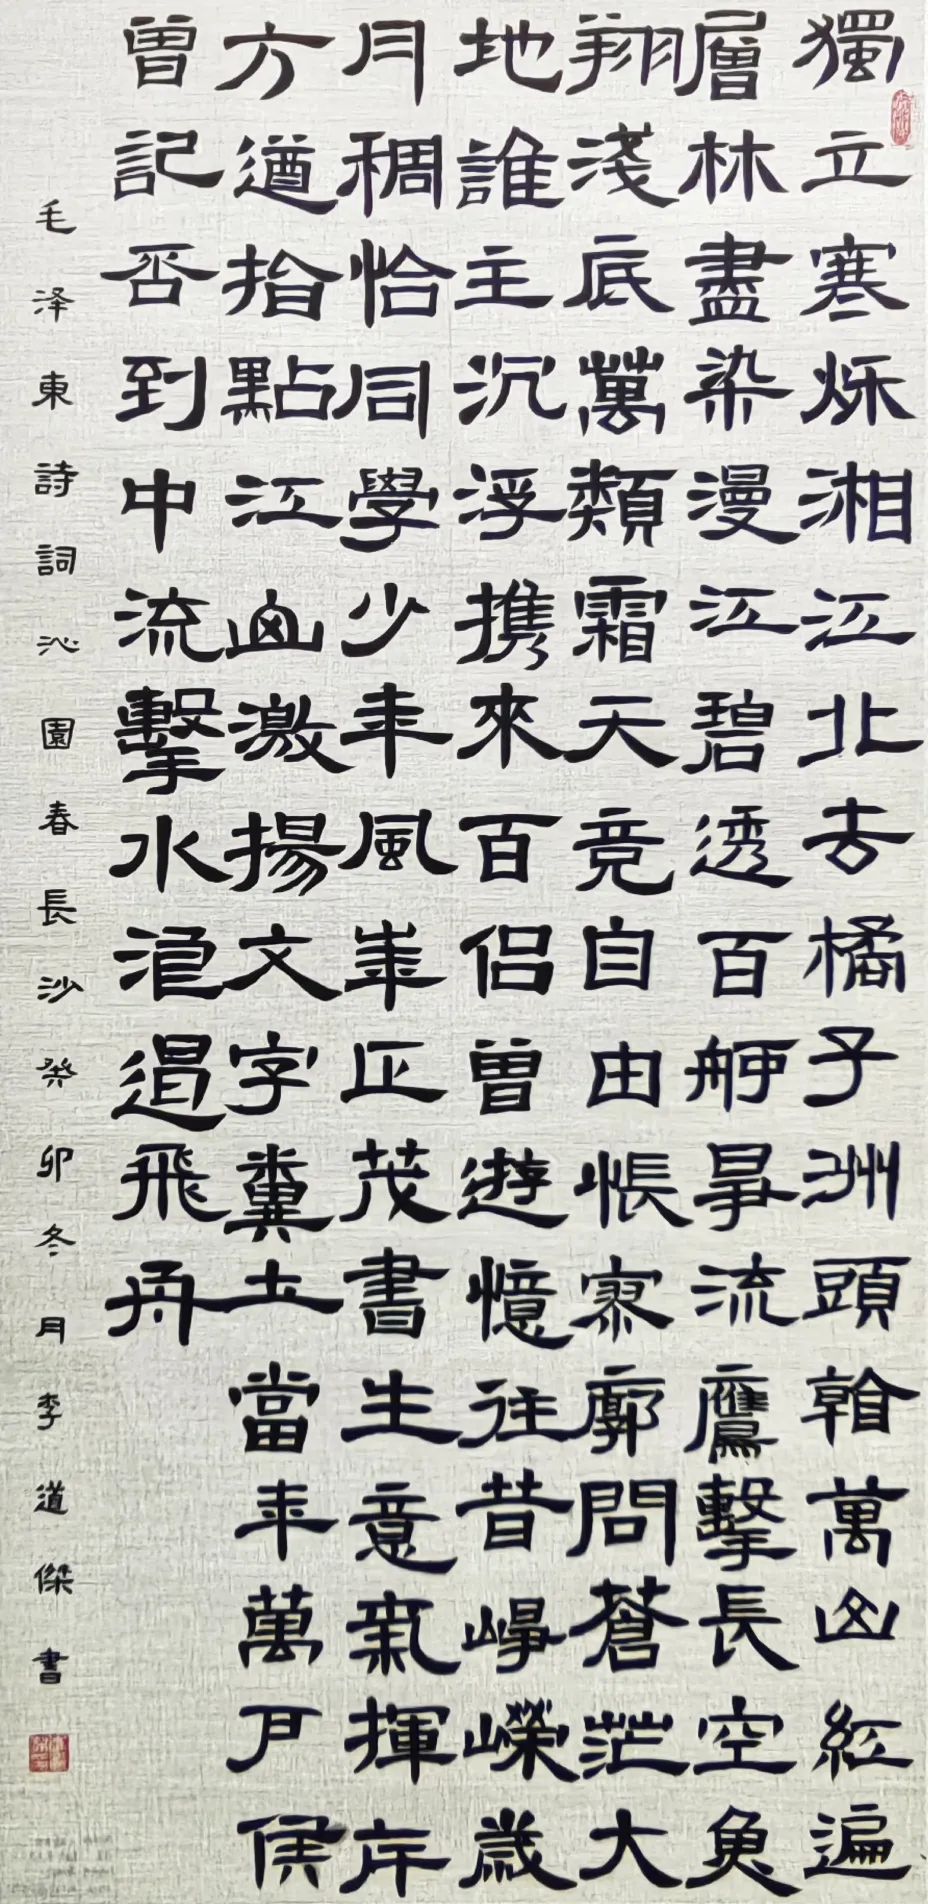 獨立寒秋湘江北去橘子洲頭看萬山紅遍
層林盡染漫江碧透百舸爭流鷹擊長空魚
翔淺底萬類霜天竞自由悵寥廓問蒼茫大
地誰主沉浮携來百侣曾遊憶往昔崢嶸歲
月稠恰同學少年風華正茂書生意氣揮斥
方遒指點江山激揚文字糞土當年萬户侯
曾記否到中流擊水浪遏飛舟
毛泽東詩詞沁園春長沙癸卯冬月李道傑書